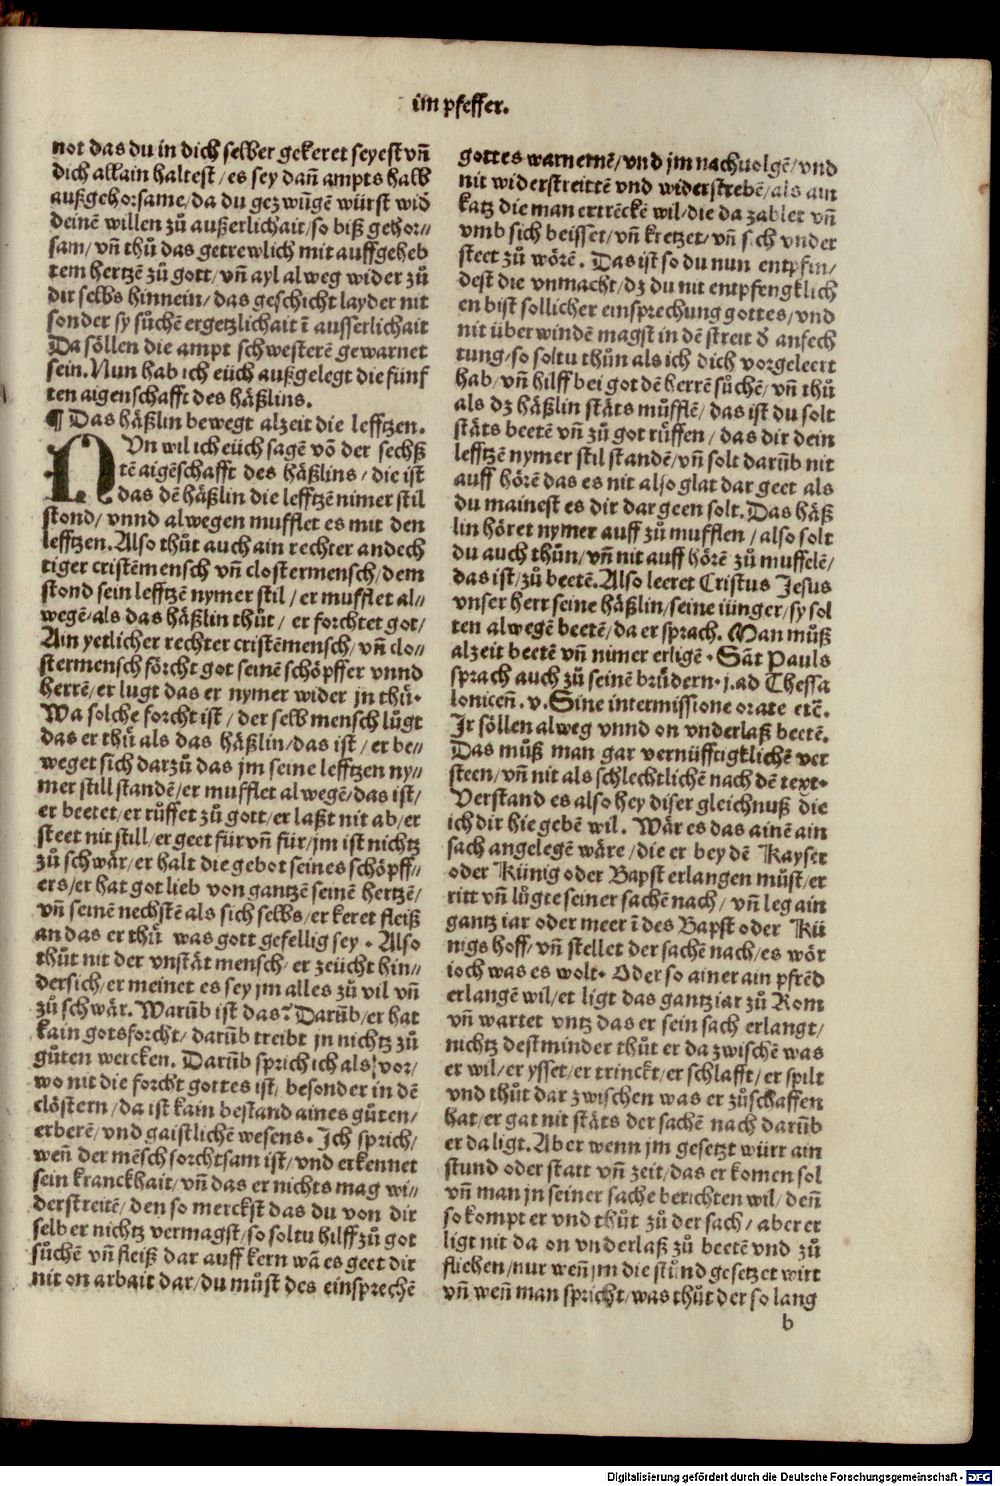 im pfeffer.
not das du in dich selber gekeret seyest vn̄
dich allain haltest / es sey dañ ampts halb
außgehorsame/da du gezwūgē würst wid
deinē willen zů außerlichait/so biß gehor⸗
sam/ vn̄ thů das getrewlich mit auffgeheb
tem hertzē zů gott/ vn̄ ayl alweg wider zů
dir selbs hinnein/ das geschicht layder nit
sonder sy sůchē ergetzlichait ī ausserlichait
Da söllen die ampt schwesterē gewarnet
sein. Nun hab ich eüch außgelegt die fünf
ten aigenschafft des häßlins.
¶ Das häßlin bewegt alzeit die lefftzen.
NVn wil ich eüch sagē vō der sechß
tē aigēschafft des häßlins / die ist
das dē häßlin die lefftzē nimer stil
stond/ vnnd alwegen mufflet es mit den
lefftzen. Also thůt auch ain rechter andech
tiger cristēmensch vn̄ clostermensch/dem
stond sein lefftzē nymer stil / er mufflet al⸗
wegē/als das häßlin thůt / er forchtet got/
Ain yetlicher rechter cristēmensch/ vn̄ clo⸗
stermensch förcht got seinē schöpffer vnnd
herrē/er lugt das er nymer wider jn thů.
Wa solche forcht ist / der selb mensch lůgt
das er thů als das häßlin/das ist / er be⸗
weget sich darzů das jm seine lefftzen ny⸗
mer still standē/er mufflet alwegē/das ist/
er beetet/er růffet zů gott/er laßt nit ab/er
steet nit still/er geet für vn̄ für/jm ist nichtz
zů schwär/er halt die gebot seines schöpff⸗
ers/er hat got lieb von gantzē seinē hertzē/
vn̄ seinē nechstē als sich selbs/er keret fleiß
an das er thů was gott gefellig sey . Also
thůt nit der vnstät mensch/ er zeücht hin⸗
dersich/er meinet es sey jm alles zů vil vn̄
zů schwär. Warūb ist das? Darūb/er hat
kain gotsforcht/ darūb treibt jn nichtz zů
gůten wercken. Darūb sprich ich als vor/
wo nit die forcht gottes ist/ besonder in dē
clöstern/da ist kain bestand aines gůten/
erberē/ vnd gaistlichē wesens. Ich sprich/
weñ der mēsch forchtsam ist/ vnd erkennet
sein kranckhait/vn̄ das er nichts mag wi⸗
derstreitē/ den so merckst das du von dir
selber nichtz vermagst/so soltu hilff zů got
sůchē vn̄ fleiß dar auff kern wā es geet dir
nit on arbait dar/du můst des einsprechē
gottes warnemē/vnd jm nachuolgē/vnd
nit widerstreittē vnd widerstrebē/als ain
katz die man ertrēckē wil/die da zablet vn̄
vmb sich beisset/vn̄ kretzet/vn̄ sich vnder
steet zů wörē. Das ist so du nun entpfin/
dest die vnmacht/dz du nit entpfengklich
en bist sollicher einsprechung gottes/vnd
nit überwindē magst in dē streit ď anfech
tung/so soltu thůn als ich dich vorgeleert
hab/vn̄ hilff bei got dē herrē sůchē/vn̄ thů
als dz häßlin stäts můfflē/ das ist du solt
stäts beetē vn̄ zů got růffen / das dir dein
lefftzē nymer stil standē/vn̄ solt darūb nit
auff hörē das es nit also glat dar geet als
du mainest es dir dar geen solt. Das häß
lin höret nymer auff zů mufflen /also solt
du auch thůn/vn̄ nit auff hörē zů muffelē/
das ist/zů beetē. Also leeret Cristus Jesus
vnser herr seine häßlin/seine iünger/sy sol
ten alwegē beetē/da er sprach. Man můß
alzeit beetē vn̄ nimer erligē . Sāt Pauls
sprach auch zů seinē brüdern. j.ad Thessa
loniceñ. v. Sine intermissione orate etc̄.
Jr söllen alweg vnnd on vnderlaß beetē.
Das můß man gar vernüfftigklichē ver
steen/vn̄ nit als schlechtlichē nach dē text.
Verstand es also bey diser gleichnuß die
ich dir hie gebē wil. Wär es das ainē ain
sach angelegē wäre /die er bey dē Kayser
oder Künig oder Bapst erlangen můst/er
ritt vn̄ lůgte seiner sachē nach/ vn̄ leg ain
gantz iar oder meer ī des Bapst oder Kü
nigs hoff/ vn̄ stellet der sachē nach/es wör
ioch was es wolt. Oder so ainer ain pfrēd
erlangē wil/et ligt das gantz iar zů Rom
vn̄ wartet vntz das er sein sach erlangt/
nichtz destminder thůt er da zwischē was
er wil/er ysset/er trinckt/er schlafft/er spilt
vnd thůt dar zwischen was er zůschaffen
hat/er gat nit stäts der sachē nach darūb
er da ligt. Aber wenn jm gesetzt würt ain
stund oder statt vn̄ zeit/das er komen sol
vn̄ man jn seiner sache berichten wil/deñ
so kompt er vnd thůt zů der sach/ aber er
ligt nit da on vnderlaß zů beetē vnd zů
fliehen/nur weñ jm die stůnd gesetzet wirt
vn̄ weñ man spricht/was thůt der so lang
b
Digitalisierung gefördert durch die Deutsche Forschungsgemeinschaft - DFG